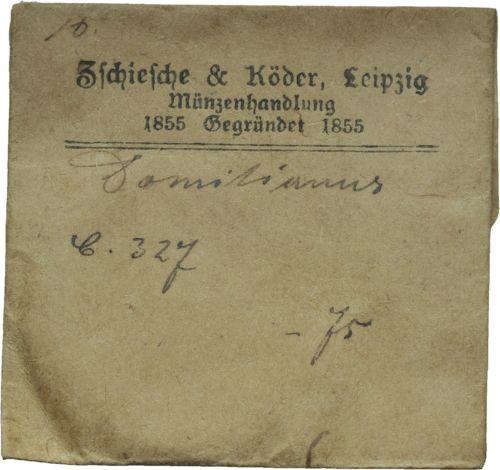 10.
Zschiesche & Köder, Leipzig
Münzenhandlung
1855 Gegründet 1855
Domitianus
C. 327
- 75